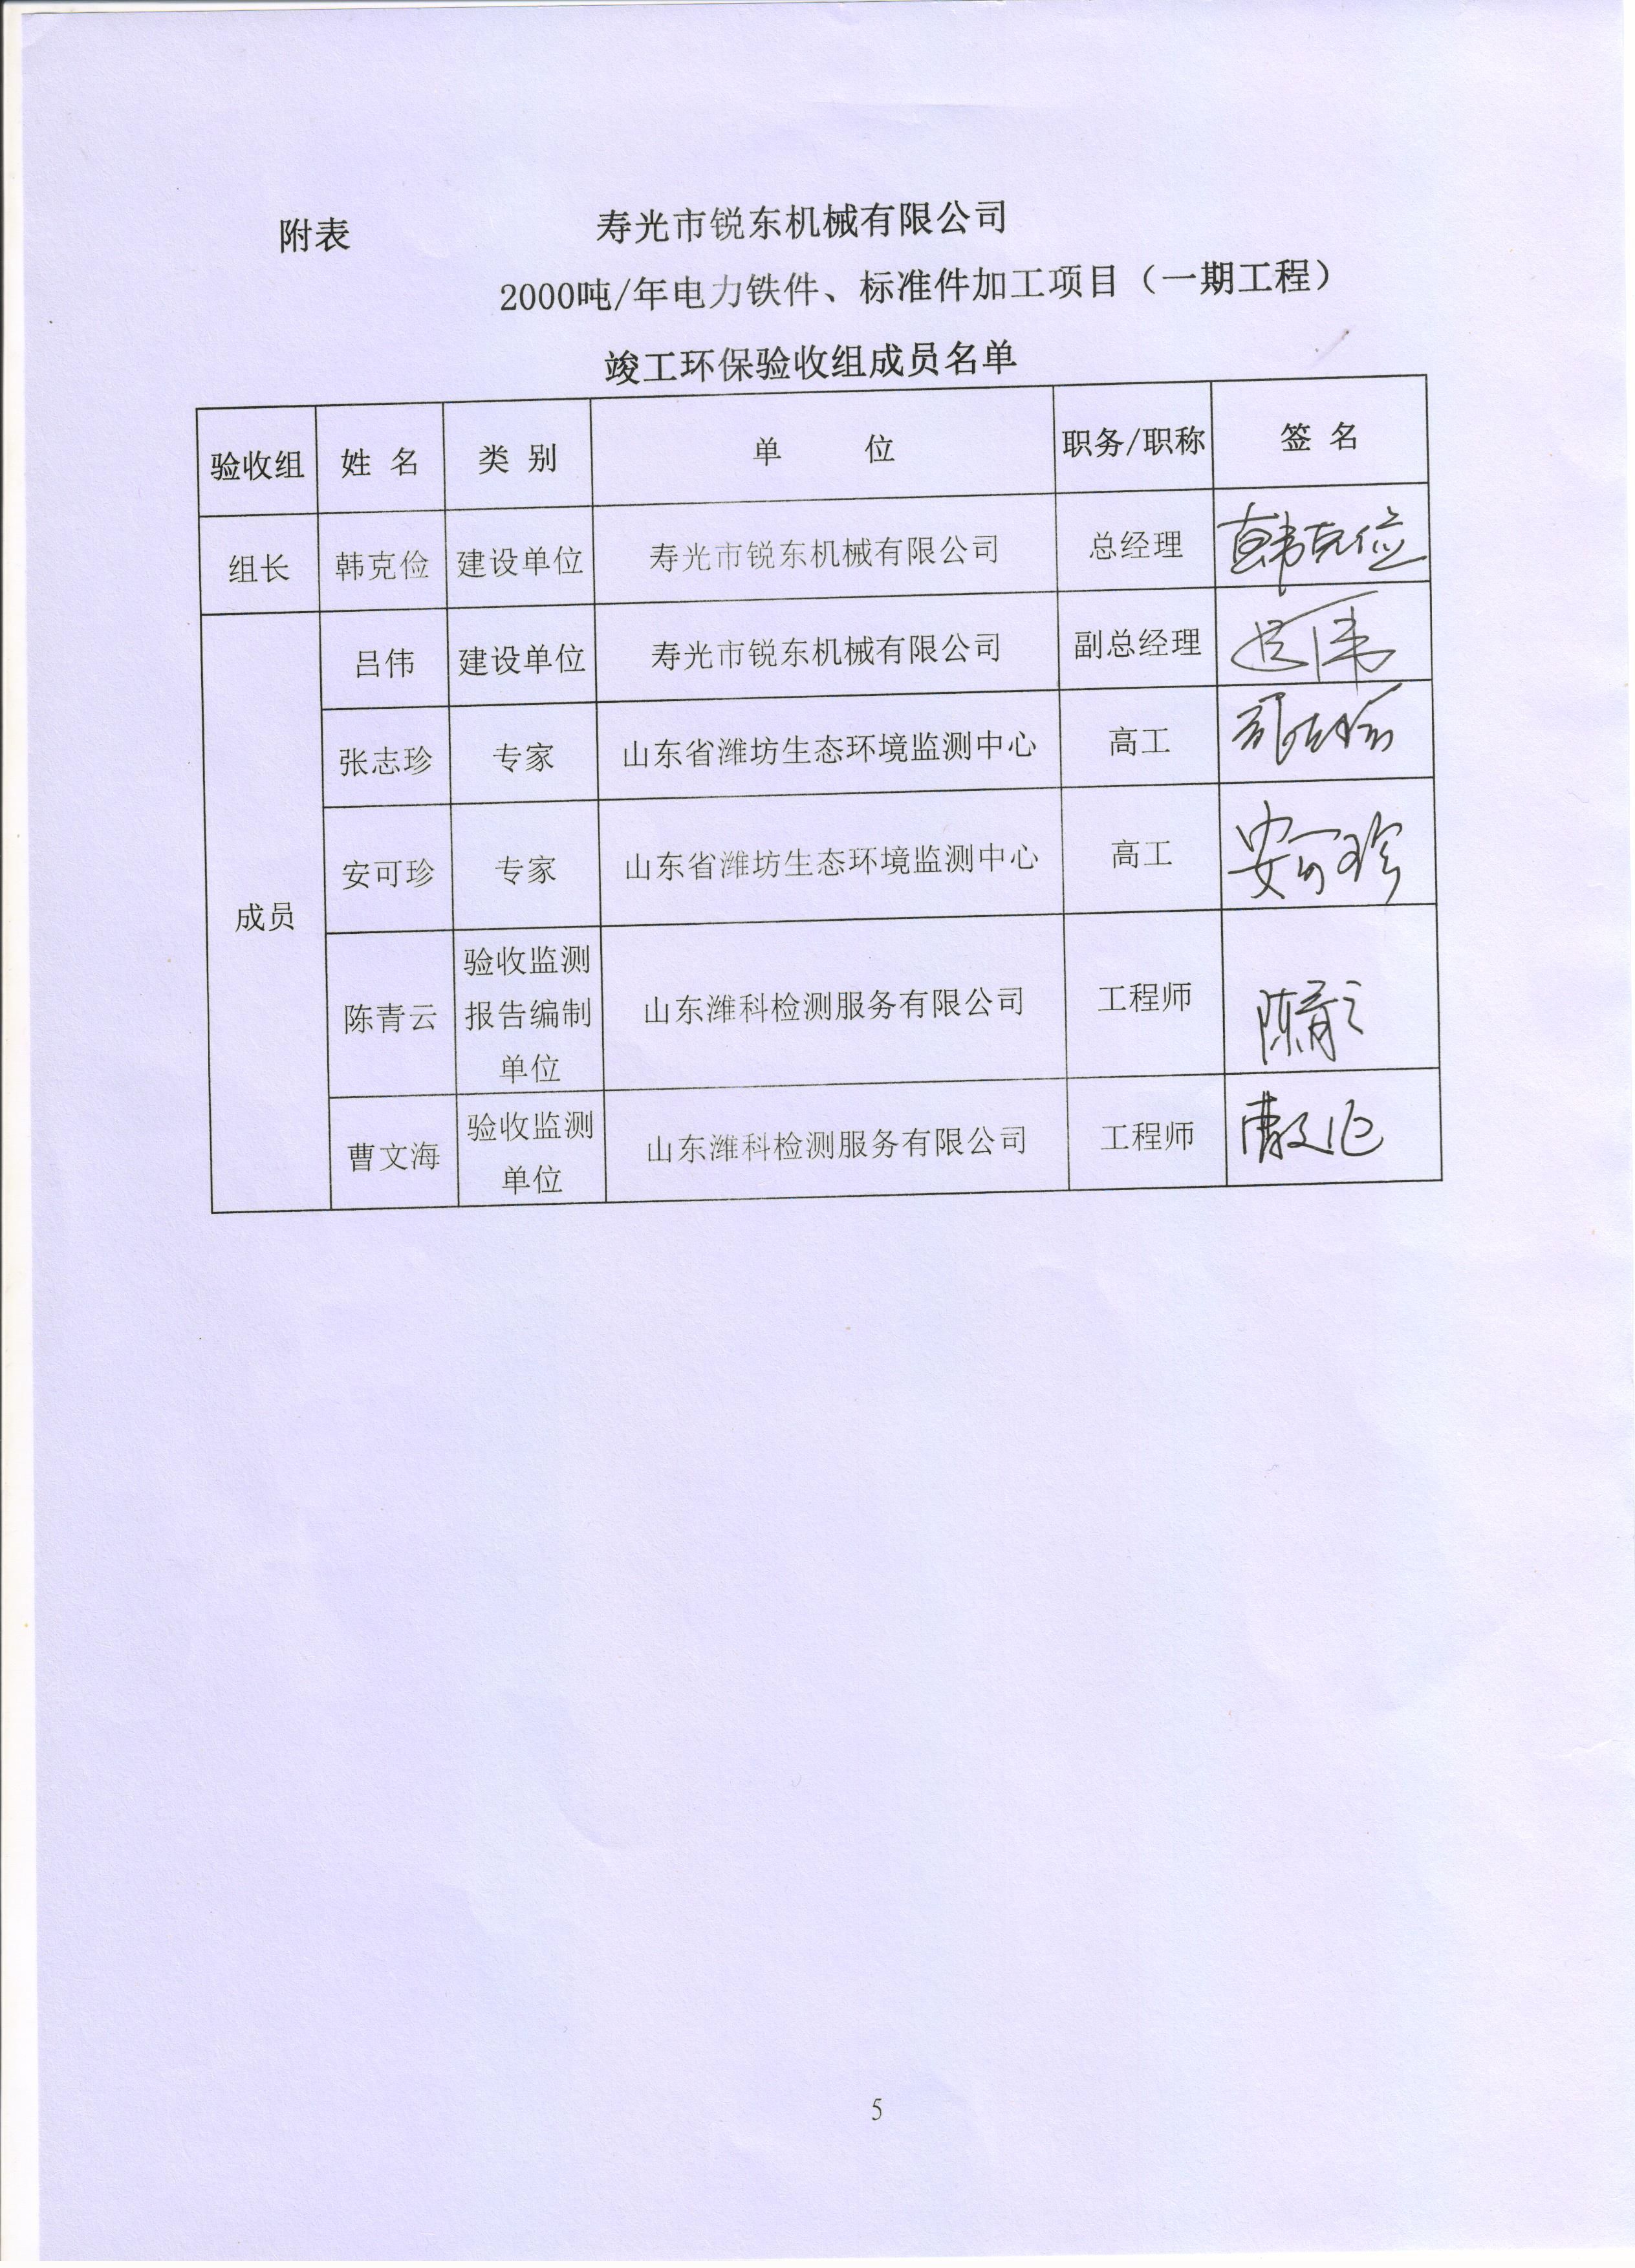 附表
寿光市锐东机械有限公司
2000吨/年电力铁件、标准件加工项目（一期工程）
竣工环保验收组成员名单
验收组 姓 名 类 别 单 位 职务/职称 签 名
组长 韩克俭 建设单位 寿光市锐东机械有限公司 总经理 韩克俭
成员 吕伟 建设单位 寿光市锐东机械有限公司 副总经理 吕伟
张志珍 专家 山东省潍坊生态环境监测中心 高工
安可珍 专家 山东省潍坊生态环境监测中心 高工 安可珍
陈青云 验收监测报告编制单位 山东潍科检测服务有限公司 工程师 陈青云
曹文海 验收监测单位 山东潍科检测服务有限公司 工程师 曹文海
5